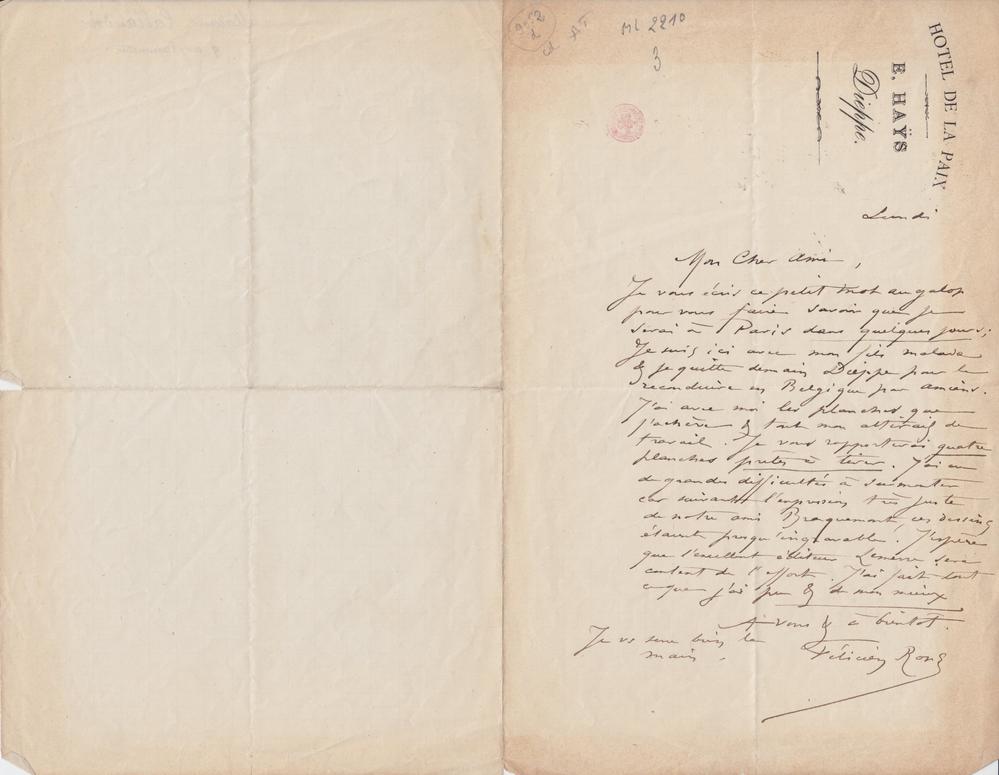 ML 2210
3
HOTEL DE LA PAIX
E. HAŸS
Dieppe.
Lundi
Mon Cher Ami,
Je vous écris ce petit mot au galop
pour vous faire savoir que je
serai à Paris dans quelques jours;
Je suis ici avec mon fils malade
& je quitte demain Dieppe pour le
reconduire en Belgique par Amiens.
J'ai avec moi les planches que
j'achève & tout mon attirail de
travail. Je vous rapporterai quatre
planches prêtes à tirer. J'ai eu
de grandes difficultés à surmonter
car suivant l'expression très juste
de notre ami Bracquemont, ces dessins
étaient presqu'ingravables. J'espère
que l'excellent éditeur Lemerre sera
content de l'effort. J'ai fait tout
ce que j'ai pu & de mon mieux
A vous & à bientot.
Je vs serre bien la
main.
Félicien Rops